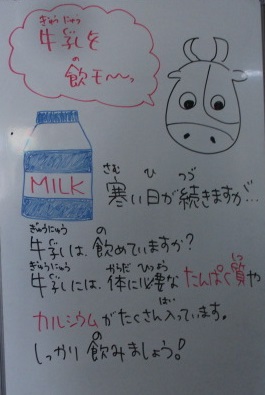 ぎゅうにゅう
牛乳を
の
飲モ〜〜っ
MILK
さむ ひ つづ
寒い日が続きますが…
ぎゅうにゅう の
牛乳は、飲めていますか?
ぎゅうにゅう からだ ひつよう しつ
牛乳には、体に必要なたんぱく質や
はい
カルシウムがたくさん入っています。
の
しっかり飲みましょう!